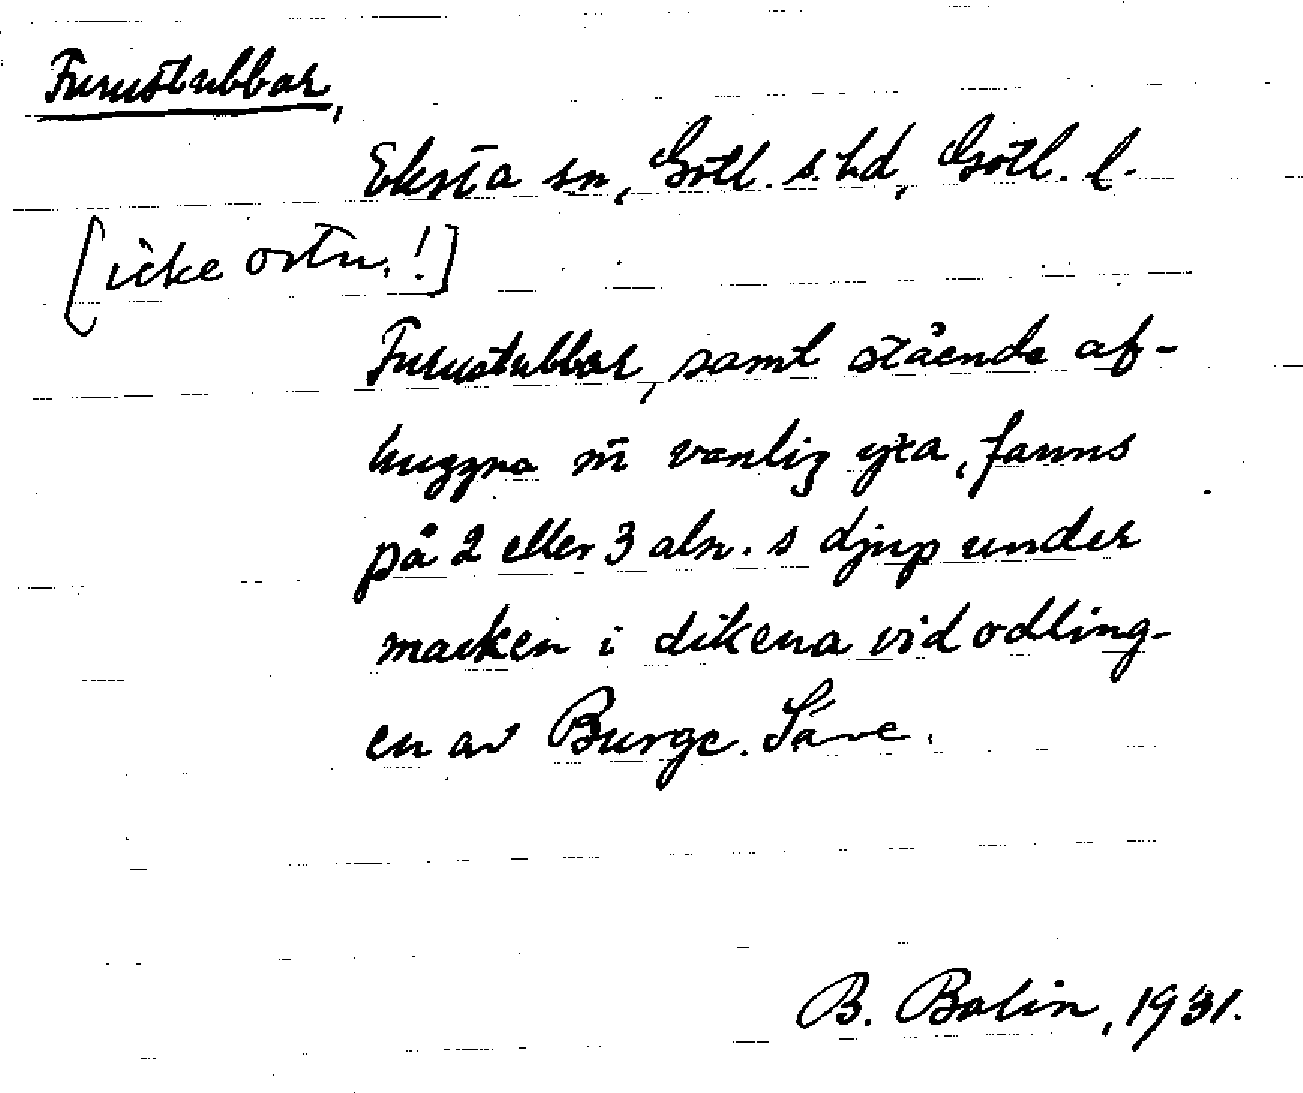 Furustubbar,
Eksta sn, Gotl. s. hd, Gotl. l.
[icke ortn.!]
Furustubbar, samt stående af-
huggna m̄ vanlig yta, fanns
på 2 eller 3 aln. s djup under
marken i dikena vid odling-
en av Burge. Säve.
B. Bolin, 1931.